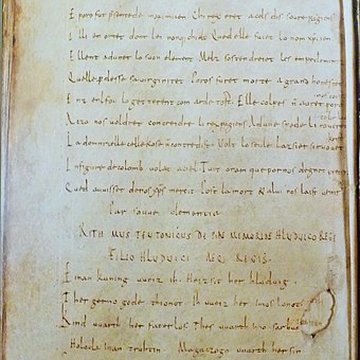 E poro fut presentede maximiien Chi rex eret a cels dis soure pagiens
I lli en ortet dont lei nonq chielt Qued elle fuiet lo nom xpiien
E llent adunet lo suon element Melz sostendreiet les empedementz
Quelle perdesse sa virginitet Poros furet morte a grand honestet
Enz enl fou lo getterent com arde tost Elle colpes n auret poro
A czo nos voldret concreidre li rex pagiens Ad une spede li roueret
La domnizelle celle kose non contredist Volt lo seule lazsier si ruouet
In figure de colomb volat a ciel Tuit oram que por nos degnet preier
Qued auuisset de nos xps mercit Post la mort & a lui nos laist venir
Par souue clementia
RITHMUS TEUTONICUS DE PIAE MEMORIAE HLUDUICO REGE
FILIO HLUDUICI AEQ REGIS.
Einan kuning uueiz ih Heizsit her hluduig
Ther gerno gode thionot Ih uueiz her imos lonot
Kind uuarth her faterlos Thes uuarth imo sar buoz
Holoda inan truhtin Magaczogo uuarth her sin